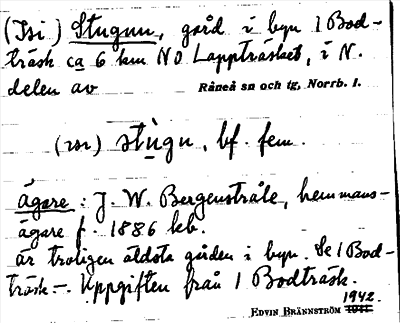 (Isi) Stugun, gård i byn 1 Bod-
träsk ca 6 km NO Lappträsket, i N.
delen av Råneå sn och tg, Norrb. l.
stùgu, bf. fem.
ägare: J. W. Bergenstråle, hemmans-
ägare f. 1886 kb.
är troligen äldsta gården i byn. Se 1 Bod-
träsk. Uppgiften från 1 Bodträsk.
1942.
EDVIN BRÄNNSTRÖM 1941